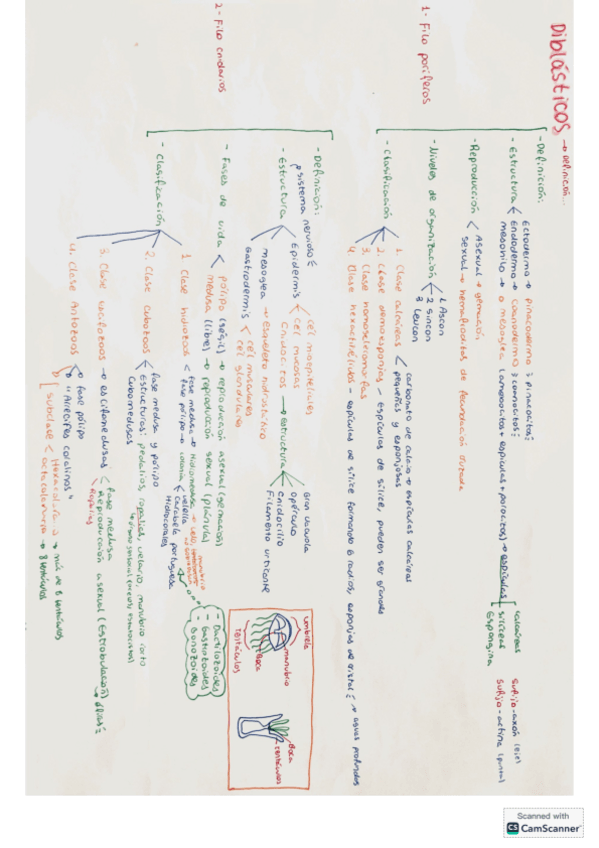 Diblásticos → Definición...
1- Filo poríferos
- Definición:
Ectodermo → pinacodermo ¿pinacocitos?
- Estructura
Endodermo → coanodermo ¿coanocitos?
mesohilo → o mesoglea (amebocitos + espículas + porocitos) → espículas
calcáreas
silíceas
Espongina
sufijo-axón (eje)
sufijo-actina (puntas)
- Reproducción
Asexual → gemación
sexual → hermafroditas de fecundación cruzada
- Niveles de organización
1. Ascon
2 Sincon
3 Leucon
- Clasificación
1. Clase calcáreas
carbonato de calcio → espículas calcáreas
pequeñas y esponjosas
2. Clase demosponjias - Espículas de sílice, pueden ser grandes
3. Clase homoscleromorfas
4. Clase hexactinélidas → espículas de sílice formando 6 radios, esponjas de cristal → aguas profundas
2- Filo cnidarios
- Definición:
sistema nervioso?
- Estructura
Epidermis
cél mioepiteliales
cél mucosas
Cnidocitos → Estructura
Gran vacuola
opérculo
Cnidocilio
Filamento urticante
mesoglea → esqueleto hidrostático
Gastrodermis
cél musculares
cél glandulares
- Fases de vida
pólipo (sésil) → reproducción asexual (gemación)
medusa (libre) → reproducción sexual (plánula)
- Clasificación
1 Clase hidrozoos
fase medusa → Hidromedusa → velo
manubrio
fase pólipo → colonia
velella
Carabela portuguesa
Hidrocorales
- Dactilozoides
- Gastrozoides
- Gonozoides
2. Clase cubozoos
fase medusa y pólipo
Estructuras: pedalios, ropalias, velario, manubrio corto
Cubomedusas
3. Clase escifozoos → escifomedusas
fase medusa
Reproducción asexual (Estrobilación) → éfiras?
Ropalias
4. Clase Antozoos
fase pólipo
"Arrecifes coralinos"
subclase
Hexacoralaria → más de 8 tentáculos
octocoralaria → 8 tentáculos
umbrela
manubrio
Boca
tentáculos
Boca
tentáculos
Scanned with
CS CamScanner